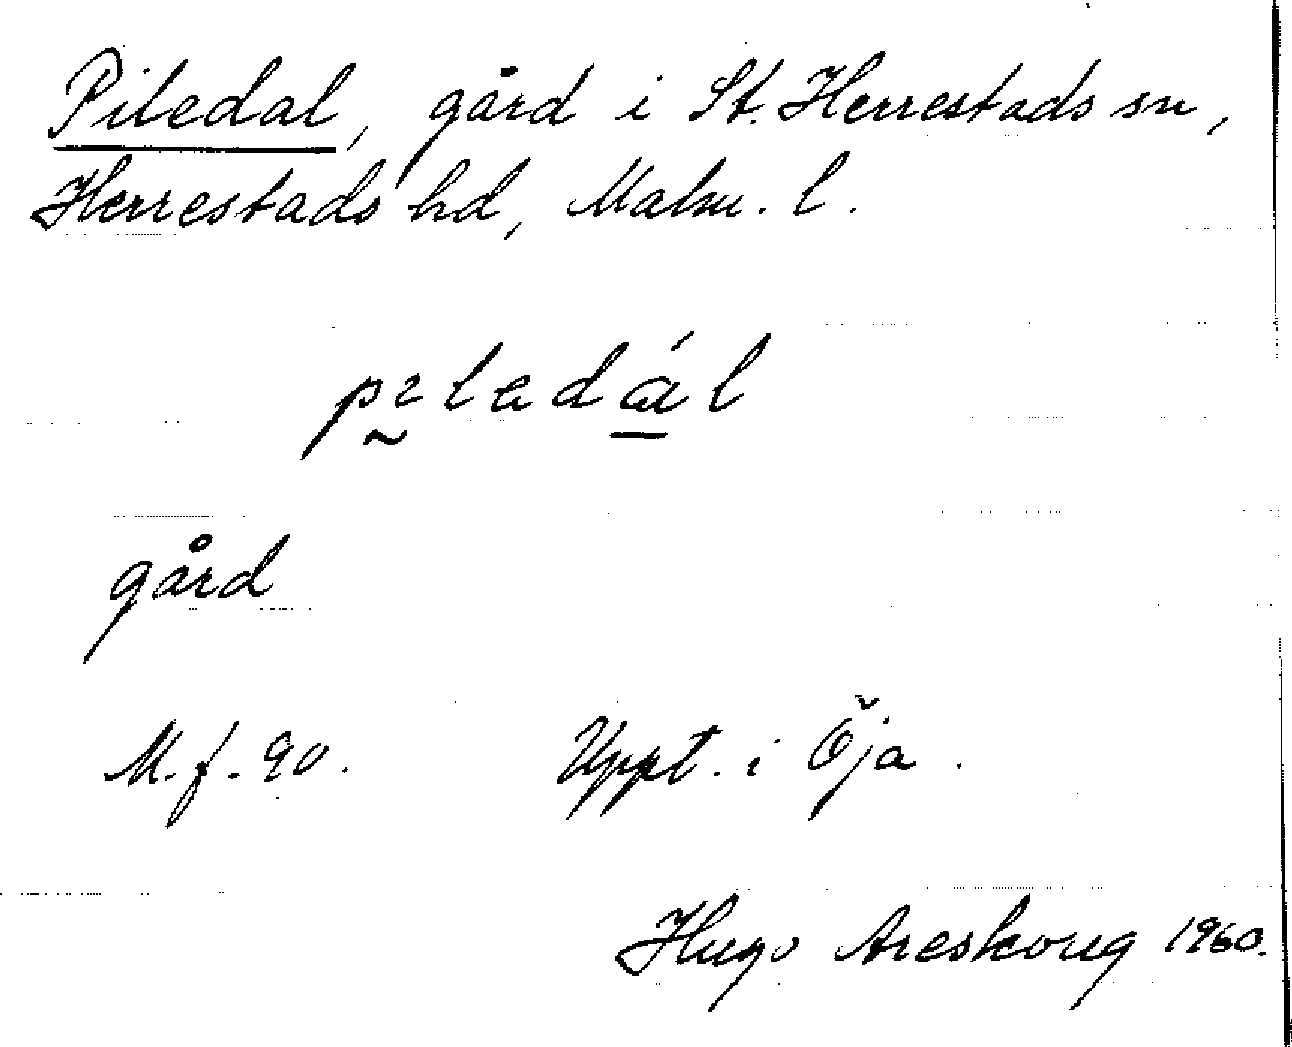 Piledal, gård i St. Herrestads sn,
Herrestads hd, Malm. l.
pıledál
gård
M. f. 90. Uppt. i Öja.
Hugo Areskoug 1960.